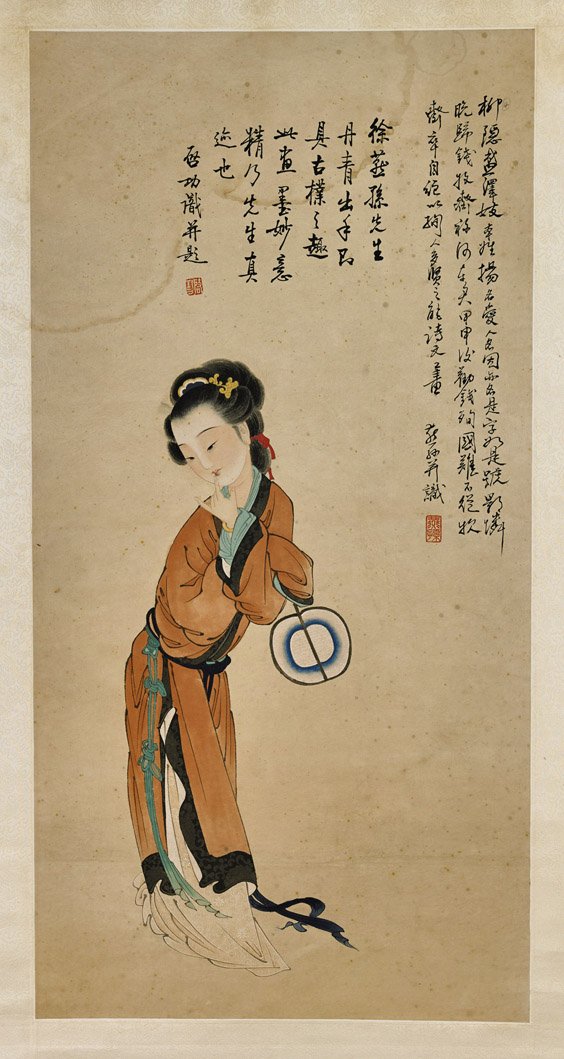 柳隱盛澤妓本姓楊名愛名因亦名是字如是號影憐
晚歸錢牧齋河東君甲申後勸錢殉國難不從牧
齋卒自絕以殉人多賢之能詩文善畫 燕孫并識
徐燕孫先生
丹青出手即
具古樸之趣
此畫墨妙意
精乃先生真
迹也
啟功識并題